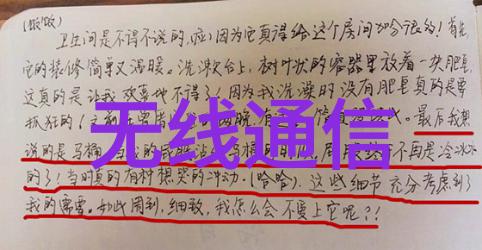 (啦啦)
卫生间是不得不说的,啦!因为它真得给这个房间加分很多!首先,
它的装修简单又温暖。洗漱台上,树叶状的容器里放着一块肥皂,
这真的是让我欢喜地不得了!因为我洗澡时没有肥皂真的是要
抓狂的!
无线通信
最后我想
说的是马桶,当我的
不再是冷冰冰
的了!当时真的有种想哭的冲动。(哈哈)。这些细节充分考虑到了
我的需要。如此周到,细致,我怎么会不爱上它呢?!